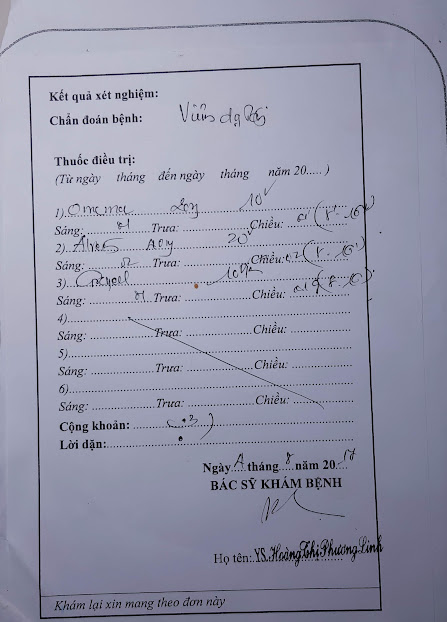 Kết quả xét nghiệm:
Chẩn đoán bệnh: Viêm dạ dày
Thuốc điều trị:
(Từ ngày tháng đến ngày tháng năm 20..... )
1) 20v 10v
Sáng: 01 Trưa: Chiều: 01 (8-16h)
2) 40v 20v
Sáng: 02 Trưa: Chiều: 02 (8-16h)
3) 10
Sáng: 01 Trưa: Chiều: 01
4)
Sáng: Trưa: Chiều:
5)
Sáng: Trưa: Chiều:
6)
Sáng: Trưa: Chiều:
Cộng khoản: (03)
Lời dặn:
Ngày tháng 8 năm 2017
BÁC SỸ KHÁM BỆNH
Họ tên: YS. Hoàng Thị Phương Linh
Khám lại xin mang theo đơn này